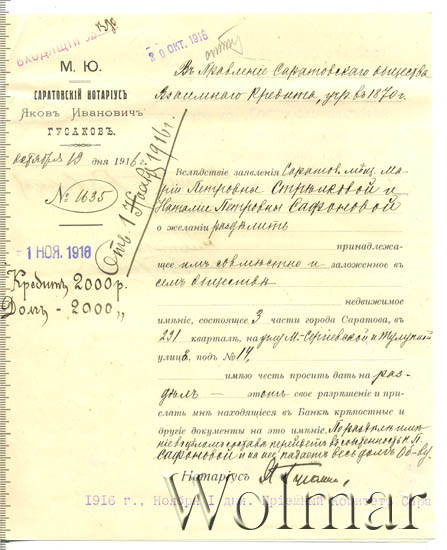 ВХОДЯЩІЙ
2 0 ОКТ. 1916
М. Ю.
САРАТОВСКІЙ НОТАРІУСЪ
Яковъ Ивановичъ
ГУСАКОВЪ.
октября 19 дня 1916 г.
№ 1635
- 1 НОЯ. 1916
Кредитъ 2000 р.
Долгъ - 2000 „
Отв. 1 Нояб. 1916 г.
Въ Правленіе Саратовскаго общества
Взаимнаго Кредита, учр. въ 1870 г.
Вслѣдствіе заявленія Саратов. мѣщ. Ма-
ріи Петровны Стрѣлковой и
Наталіи Петровны Сафоновой
о желаніи раздѣлить
принадлежа-
щее имъ совмѣстно и заложенное въ
семъ обществѣ
недвижимое
имѣніе, состоящее 3 части города Саратова, въ
231 кварталѣ, на углу М-Сергіевской и Тулупной
улицъ, подъ № 14,
имѣю честь просить дать на раз-
дѣлъ — этотъ свое разрѣшеніе и при-
слать мнѣ находящіеся въ Банкѣ крѣпостные и
другіе документы на это имѣніе. По раздѣлу имѣ-
ніе въ цѣломъ составѣ переходитъ въ собственность Н. П.
Сафоновой и на нее падаетъ весь долгъ Об-ву.
Нотаріусъ
1916 г., Ноября 1 дня. Пріемный Комитетъ Сара
Wolmar